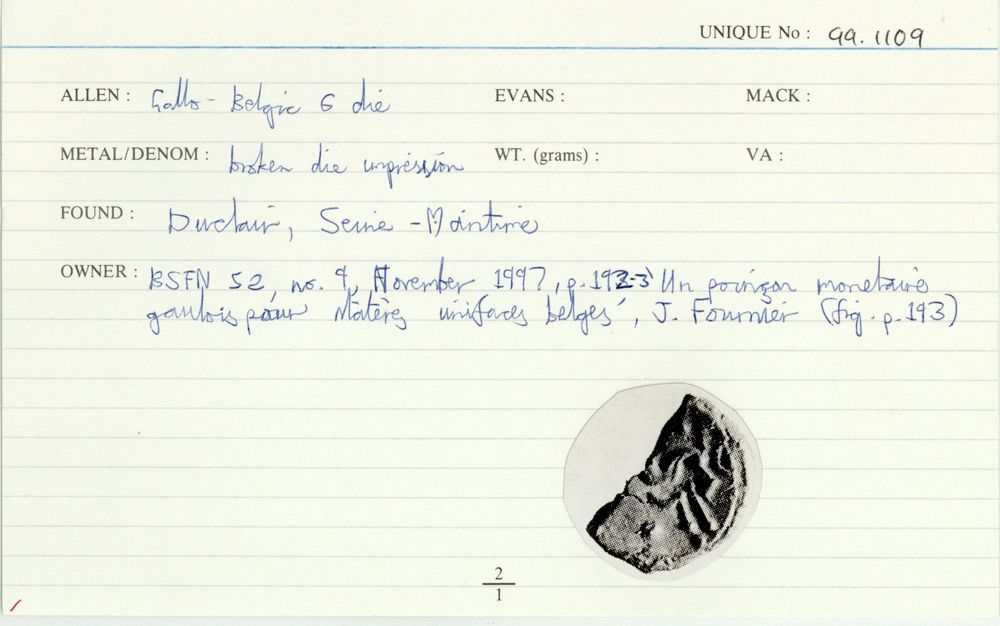 UNIQUE No : 99.1109
ALLEN : Gallo-Belgic G die EVANS : MACK :
METAL/DENOM : broken die impression WT. (grams) : VA :
FOUND : Duclair, Seine-Maritime
OWNER : BSFN 52, no. 9, November 1997, p. 192-3 'Un poinçon monetaire
gaulois pour statères unifaces belges', J. Fournier (fig. p. 193)
2
1